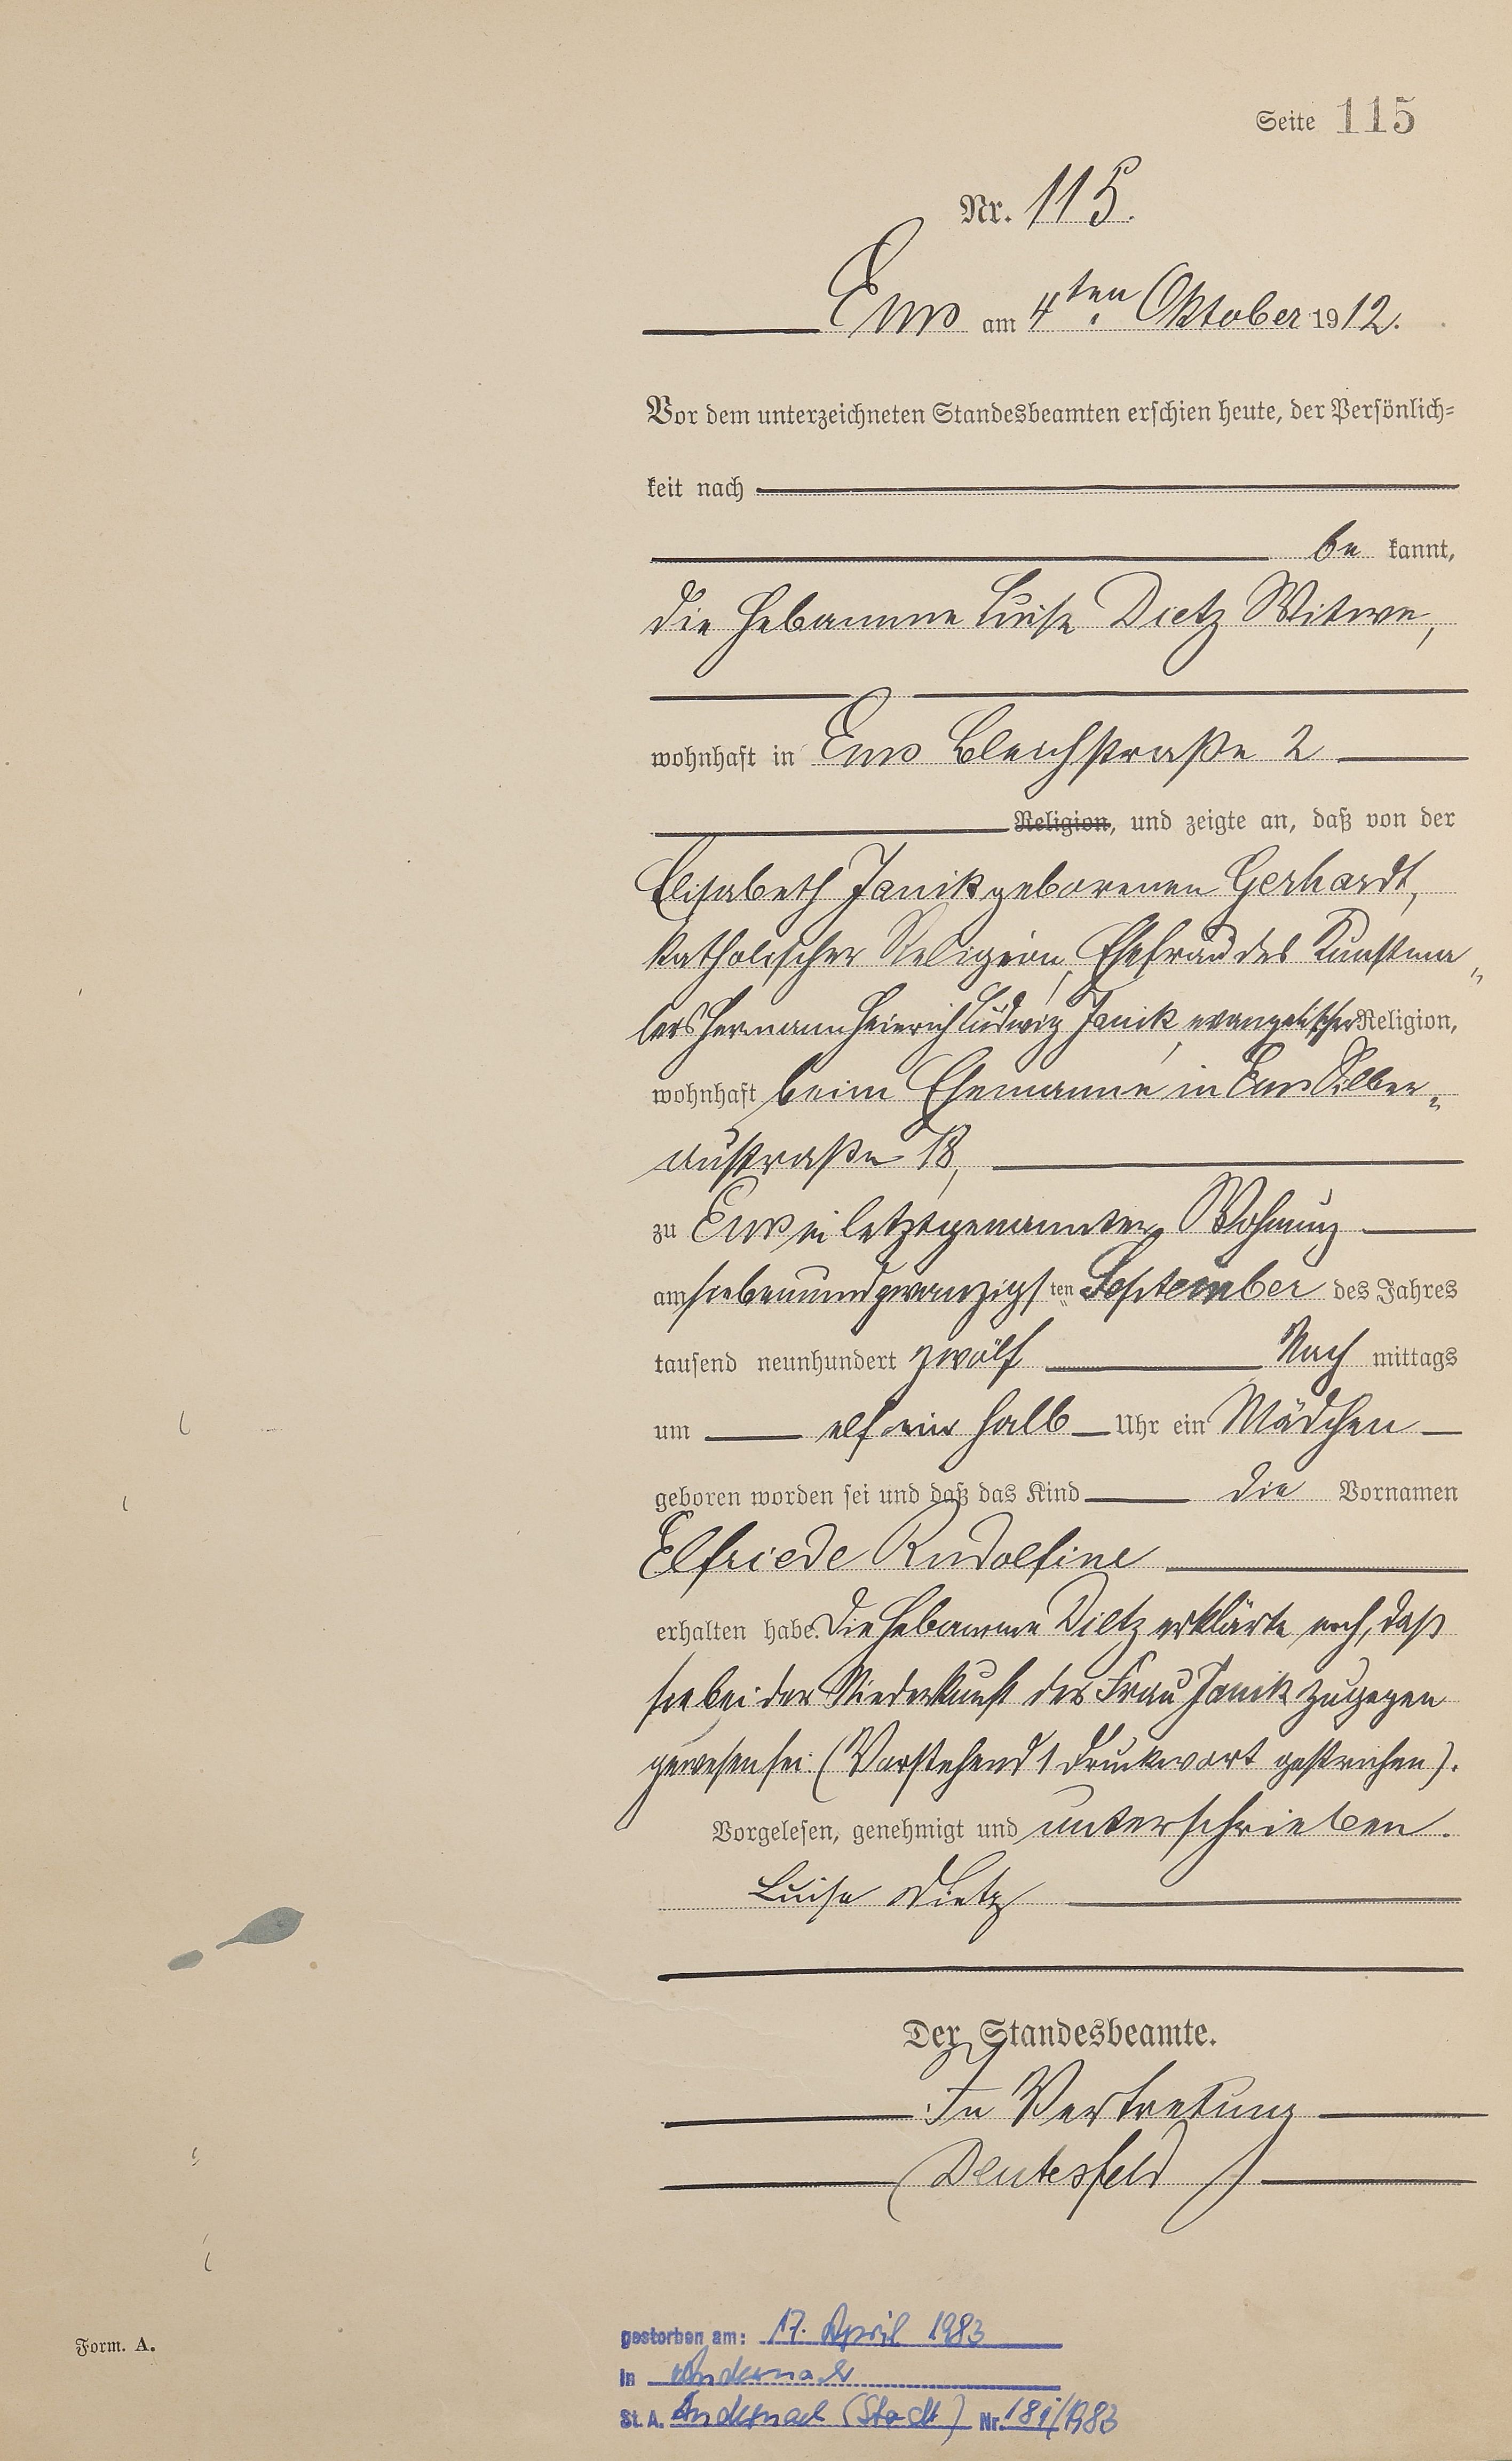 Seite 115
Nr. 115.
Ems am 4ten Oktober 1912.
Vor dem unterzeichneten Standesbeamten erschien heute, der Persönlich=
keit nach
be kannt,
die Hebamme Luise Dietz Witwe,
wohnhaft in Ems Bleichstraße 2
Religion, und zeigte an, daß von der
Elisabeth Janik geborenen Gerhardt,
katholischer Religion, Ehefrau des Kunstma„
lers Hermann Heinrich Ludwig Janik, evangelischer Religion,
wohnhaft beim Ehemanne in Ems Silber„
austraße 18,
zu Ems in letztgenannter Wohnung
am siebenundzwanzigsten September des Jahres
tausend neunhundert zwölf Nach mittags
um elf ein halb Uhr ein Mädchen
geboren worden sei und daß das Kind die Vornamen
Elfriede Rudolfine
erhalten habe. Die Hebamme Dietz erklärte noch, daß
sie bei der Niederkunft der Frau Janik zugegen
gewesen sei. (Vorstehend 1 Druckwort gestrichen).
Vorgelesen, genehmigt und unterschrieben.
Luise Dietz
Der Standesbeamte.
In Vertretung
(Deutesfeld)
Form. A.
gestorben am: 17. April 1983
in Andernach
St. A. Andernach (Stadt) Nr. /1983